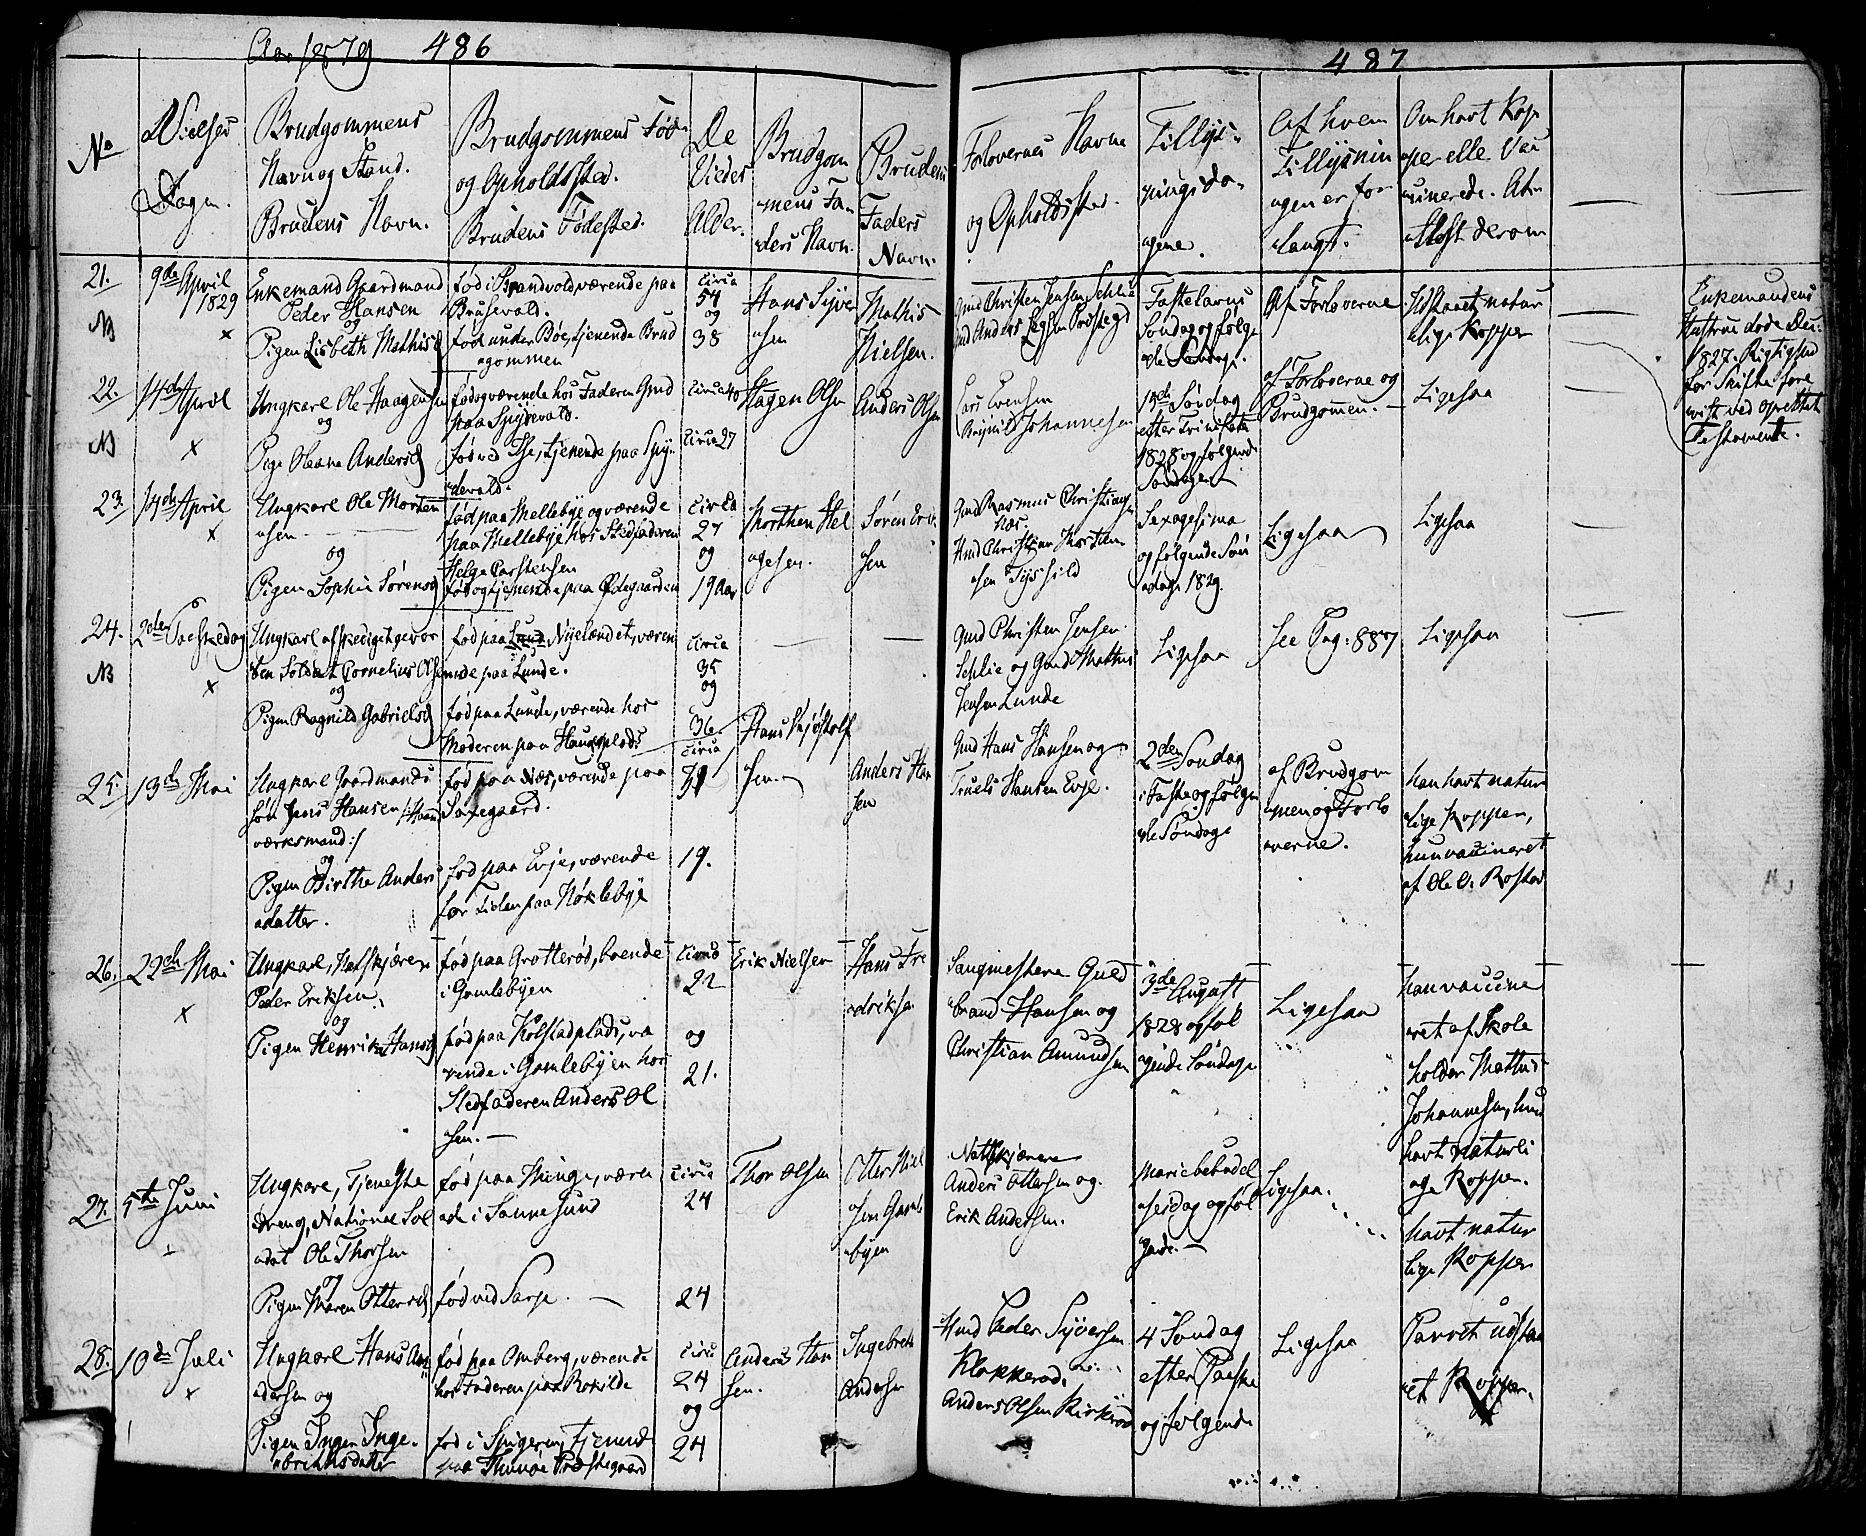 486
487
No
Vielses
Dagen.
Brudgommens
Navn og Stand.
Brudens Navn.
Brudgommens Fød
og Opholdssted.
Brudens Fødested.
De
Viedes
Alder.
Brudgom
mens Fa
ders Navn.
Brudens
Faders
Navn.
Forlovernes Navne
og Opholdssted.
Tillys-
ningsda-
gene.
Af hvem
Tillysnin
gen er for
langt.
Om havt Kop
per elle Vac
cinerede. At
test derom
21.
NB
9de April
1829
x
Enkemand Gaardmand
Peder Hansen
og
Pigen Lisbeth Mathisd
født i Brandvold værende paa
Brusevold.
født under Bøe, tjenende Brud
gommen
Circa
54
og
38
Hans Syve
sen
Mathis
Nielsen.
Gmd Christen Jensen Schlie
Fastelavns
Søndag og følge
de Søndage.
Af Forloverne
Udstaaet natur
lige Kopper
Enkemandens
Hustrue døde Dec:
1827. Rigtighed
for Skifte fore
vist ved oprettet
Testamente.
22.
NB
14de April
x
Ungkarl Ole Haagensen
og
Pige Oleane Andersd
fød og værende hos Faderen Gmd
paa Spydevold.
fød ved Thse, tjenende paa Spy
devold.
Circa 40
Circa 27
Hagen Olsen
Anders Olsen
Lars Evensen
Johannesen
Søndag
efter Trinitatis
1828 og følgende
Søndage
af Forloverne og
Brudgommen.
Ligesaa
23.
14de April
x
Ungkarl Ole Morten
sen
og
Pigen Sophie Sørensd
fød paa Mellebye og værende
paa Mellebye hos Stedfaderen
Helge Carstensen
fød og tjenende paa Ødegaarden
Circa
27
og
19 Aar
Morthen Hel
gesen.
Søren Ev
sen
Gmd Rasmus Christians
Næs.
Hmd Christian Morthen
sen Tyshild
Sexagesima
og følgende Søn
dage 1829.
Ligesaa
Ligesaa
24.
NB
2den Paaskedag
x
Ungkarl afskediget gevor
ben Soldat Cornelius Olsen
og
Pigen Ragnild Gabrielsd
fød paa Lund Nyelændet, væren
de paa Lunde.
fød paa Lunde, værende hos
Moderen paa Haugsplads
Circa
35
og
36
Gmd Christen Jensen
Schlie og Gmd Mathis
Jensen Lunde
Ligesaa
See Pag: 887
Ligesaa
25.
13de Mai
Ungkarl Gaardmands
søn Jens Hansen /:Haand
værksmand:/
og
Pigen Birthe Anders
datter.
fød paa Næs, værende paa
Saxegaard.
fød paa Evje, værende
for Tiden paa Nøklebye
Circa
31
19.
Hans Kjøstolf
sen
Anders Han
sen
Gmd Hans Hansen og
Truels Hansen Evje.
2den Søndag
i Faste og følgen
de Søndage
af Brudgom
men og Forlo
verne.
han havt natur
lige Kopper,
hun vaccineret
af Ole O. Rostad
26.
22de Mai
x
Ungkarl, Natskjære
Peder Eriksen
og
Pigen Henrika Hansd
fød paa Grotterød, boende
i Gamlebyen
fød paa Kolstadplads, væ
rende i Gamlebyen hos
Stedfaderen Anders Ol
sen.
Circa
22
og
21.
Erik Nielsen
Hans Fre
driksen
Sangmestere Guld
brand Hansen og
Christian Amundsen
3de August
1828 og føl
gende Søndage
Ligesaa
han vaccine
ret af Skole
holder Mathis
Johannesen, hun
havt naturli
ge Kopper.
27.
5te Juni
Ungkarl, Tjeneste
dreng, National Sol
dat Ole Thorsen
og
Pigen Maren Ottersd
fød paa Minge, væren
de i Sannesund
fød ved Sarpe.
Circa
24
24
Thor Olsen
Otter Niel
sen Gaml
byen
Natskjærere
Anders Ottersen og
Erik Andersen.
Mariebebudel
sesdag og føl
gende.
Ligesaa.
havt natur
lige Kopper
28.
10de Juli
x
Ungkarl Hans An
dersen og
Pigen Inger Inge-
brethsdatter
fød paa Omberg, værende
hos Faderen paa Rokilde
fød i Spigeren, tjenend
paa Thunøe Præstegaard
Circa
24
og
24
Anders Han
sen.
Ingebreth
Andersen
Hmd Peder Syversen
Klokkerød.
Anders Olsen Kirkerød
4 Søndag
efter Paaske
og følgende
Ligesaa
Parret udstaa
et Kopper.